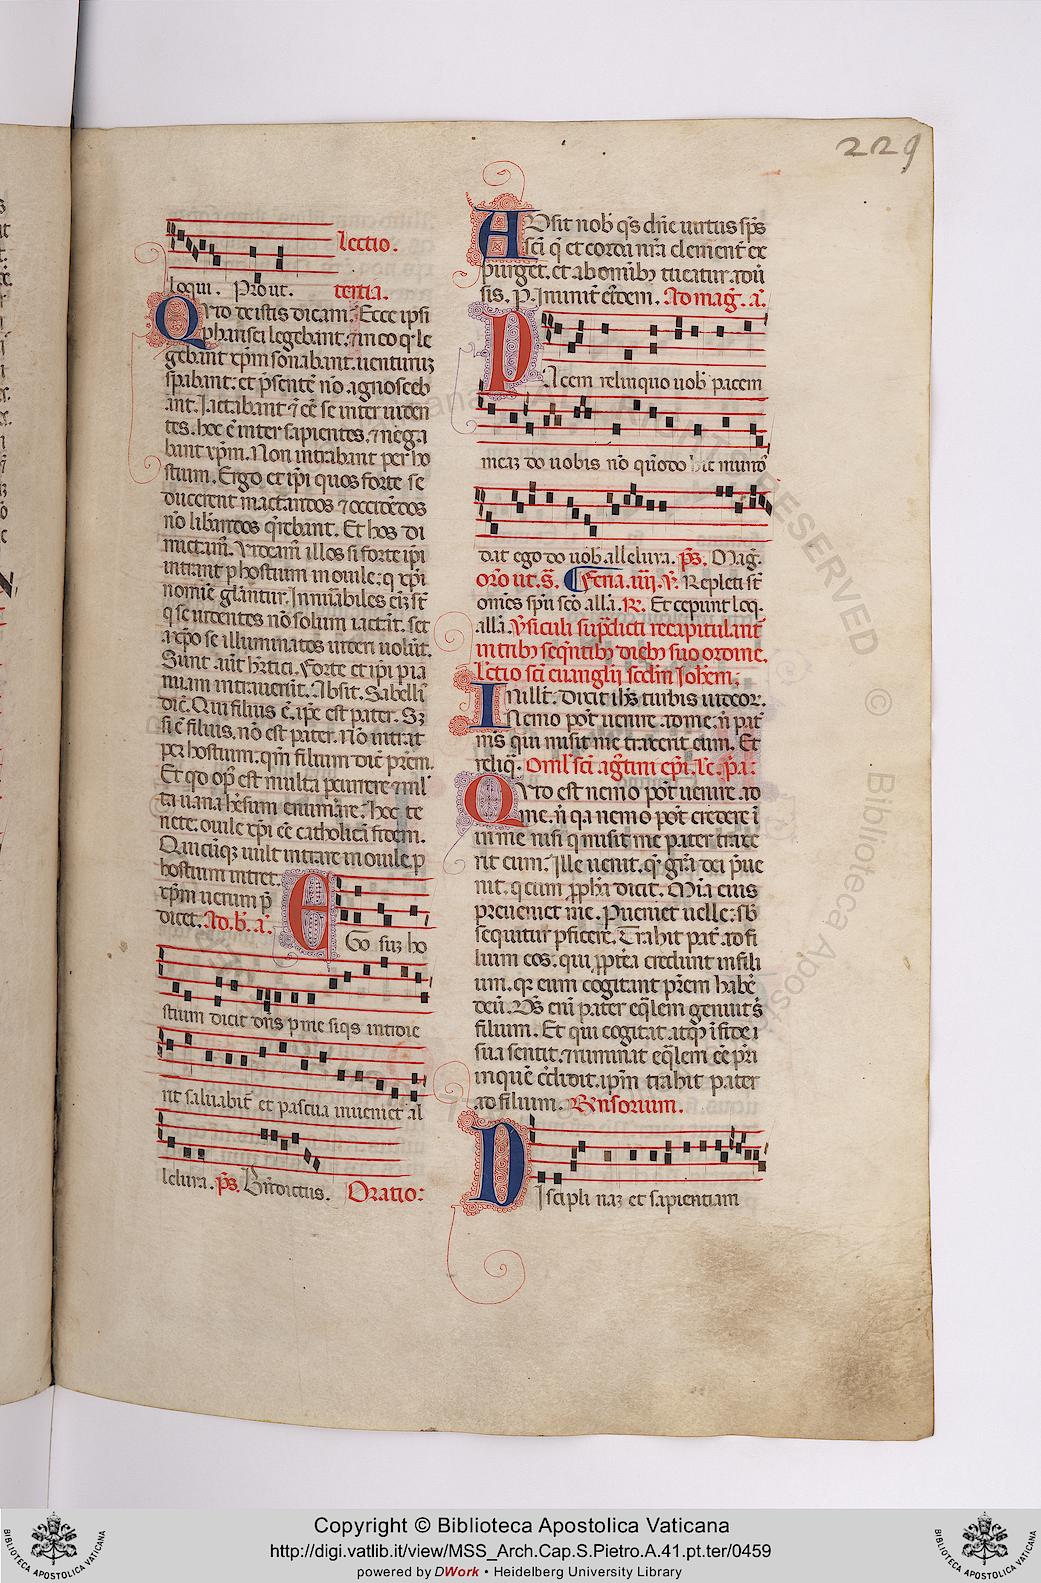 229
lectio.
loqui. Prout. tertia.
Q Vid de istis dicam? Ecce ipsi
pharisei legebant. et in eo qd le
gebant xpm sonabant. uenturuz
spabant. et psente no agnosceb
ant. Iactabant et se inter uiden
tes. hoc e inter sapientes. et nega
bant xpm. Non intrabant per ho
stium. Ergo et ipi quos forte se
ducerent mactandos et occidedos
no liberandos qrebant. Et hos di
mictam. Videam illos si forte ipi
intrant p hostium in ouile. q xpi
nomine gliantur. Innumabiles eiz st
q se uidentes no solum iactat. set
a xpo se illuminatos uideri uolut.
Sunt aut hretici. Forte et ipi p ia
nuam intrauerut. Absit. Sabelli
dic. Qui filius e. ipe est pater. Sz
si e filius. no est pater. No intrat
per hostium. qm filium dic prem.
Et qd op est multa peurrere et mil
ta uana heresum enumare. hoc te
nete. ouile xpi ee catholica fidem.
Quicuqz uult intrare in ouile. p
hostium intret.
xpm uerum p
dicet. Ad. b. a.
E Go suz ho
stium dicit dns p me siqs introie
rit saluabit et pascua inueniet al
leluia. ps. Bndictus. Oratio:
A Dsit nob qs dne uirtus sps
sci q et corda nra clement ex
purget. et ab omib tueatur adu
sis. P. In unit eidem. Ad mag. a.
P Acem relinquo uob pacem
meaz do uobis no quodo hic mundo
dat ego do uob. alleluia. ps. Mag.
oro ut. s. Feria. iiii. V. Repleti st
omes spu sco alla. R. Et cepunt loq.
alla. Vsiculi supdicti recapitulant
in tribz seqntibz diebz suo ordine.
Lectio sci euanglii scdm Iohem;
I n illt. Dicit ihs turbis iudeor.
Nemo pot uenire ad me. n pat
ms qui misit me traxerit eum. Et
reliq. Oml sci agstini epi. lc. pa.
Q Vid est nemo pot uenire ad
me. n qa nemo pot credere i
in me nisi q misit me pater traxe
rit eum. Ille uenit. qe gra dei pue
nit. q cum ppha dicit. Mia eius
preueniet me. Pueniet uelle: sb
sequitur pficere. Trahit pat ad fi
lium eos. qui pptea credunt in fili
um. qr eum cogitant prem habe
deu. Ds eni pater eqlem genuit s
filium. Et qui cogitat. atqz i fide
sua sentit. et ruminat eqlem ee pri
in que credidit. ipm trahit pater
ad filium. Rensorium.
D Iscipli naz et sapientiam
Copyright © Biblioteca Apostolica Vaticana
http://digi.vatlib.it/view/MSS_Arch.Cap.S.Pietro.A.41.pt.ter/0459
powered by DWork • Heidelberg University Library
BIBLIOTECA APOSTOLICA VATICANA
BIBLIOTECA APOSTOLICA VATICANA